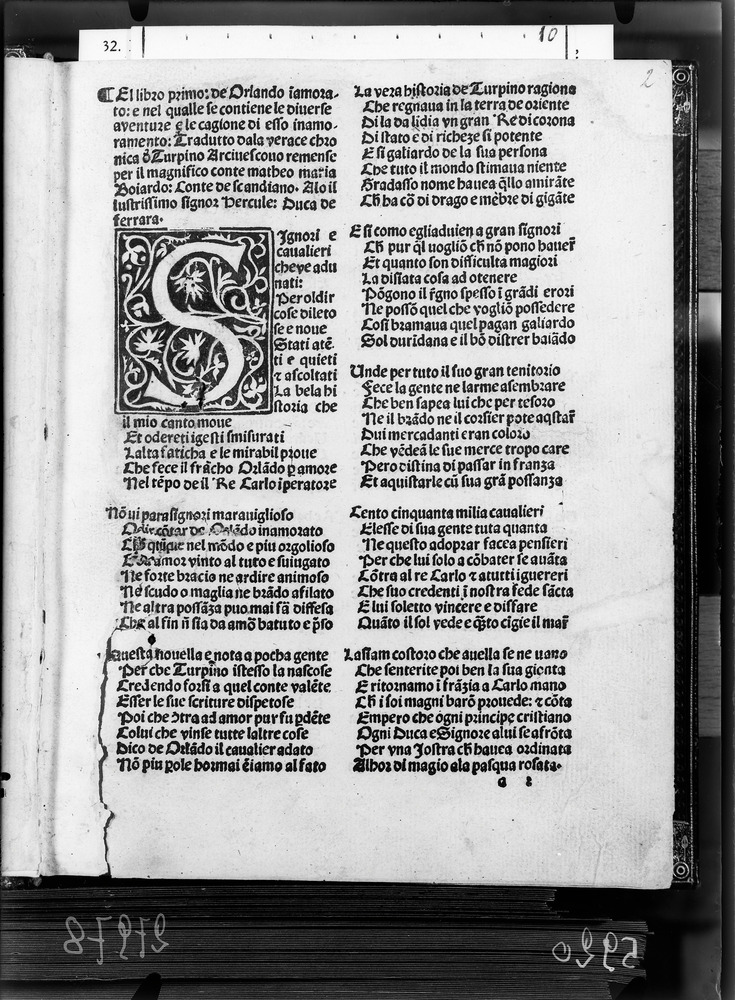 32.
10
2
¶ El libro primo: de Orlando ĩamora-
to: e nel qualle se contiene le diuerse
aventure e le cagione di esso inamo-
ramento: Tradutto dala verace chro
nica ð Turpino Arciuescouo remense
per il magnifico conte matheo maria
Boiardo: Conte de scandiano. Alo il
lustrissimo signor Hercule: Duca de
ferrara.
SIgnori e
caualieri
che ve adu
nati:
Per oldir
cose dileto
se e noue
Stati atē.
ti e quieti
⁊ ascoltati
La bela hi
storia che
il mio canto moue
Et odereti i gesti smisurati
Lalta faticha e le mirabil proue
Che fece il frācho Orlādo ꝑ amore
Nel tēpo de il Re Carlo iperatore
Nō ui para signori marauiglioso
Odir cōtar de Orlādo inamorato
nel mōdo e piu orgolioso
amor vinto al tuto e suiugato
Ne forte bracio ne ardire animoso
Ne scudo o maglia ne brādo afilato
Ne altra possāza puo mai fā diffesa
Che al fin ñ sia da amō batuto e p̃so
Questa nouella e nota a pocha gente
Per che Turpino istesso la nascose
Credendo forsi a quel conte valēte
Esser le sue scriture dispetose
Poi che ↄtra ad amor pur fu ꝑdēte
Colui che vinse tutte laltre cose
Dico de Orlādo il caualier adato
Nō piu ꝑole hormai ẽiamo al fato
La vera historia de Turpino ragiona
Che regnaua in la terra de oriente
Di la da lidia vn gran Re di corona
Di stato e di richeze si potente
E si galiardo de la sua persona
Che tuto il mondo stimaua niente
Gradasso nome hauea q̄llo amirāte
Ch̄ ha cō di drago e mēbre di gigāte
E si como egli aduien a gran signori
Ch̄ pur q̄l uogliō ch̄ nō pono hauer̄
Et quanto son difficulta magiori
La disiata cosa ad otenere
Pōgono il r̄gno spesso ĩ grādi erori
Ne possō quel che vogliō possedere
Cosi bramaua quel pagan galiardo
Sol duridana e il bō distrer baiādo
Unde per tuto il suo gran tenitorio
Fece la gente ne larme asembrare
Che ben sapea lui che per tesoro
Ne il brādo ne il corsier pote aqstar̄
Dui mercadanti eran coloro
Che vēdeā le sue merce tropo care
Pero distina di passar in franza
Et aquistarle cū sua grā possanza
Cento cinquanta milia caualieri
Elesse di sua gente tuta quanta
Ne questo adoprar facea pensieri
Per che lui solo a cōbater se auāta
Cōtra al re Carlo ⁊ a tutti iguereri
Che suo credenti ĩ nostra fede sācta
E lui soletto vincere e disfare
Quāto il sol vede e q̄ēto cigie il mar̄
Lassam costoro che auella se ne uano
Che senterite poi ben la sua gionta
E ritornamo ĩ frāzia a Carlo mano
Ch̄ i soi magni barō prouede: ⁊ cōta
Empero che ogni principe cristiano
Ogni Duca e Signore a lui se afrōta
Per vna Jostra ch̄ hauea ordinata
Alhor di magio ala pasqua rosata.
a 2
21978
5920